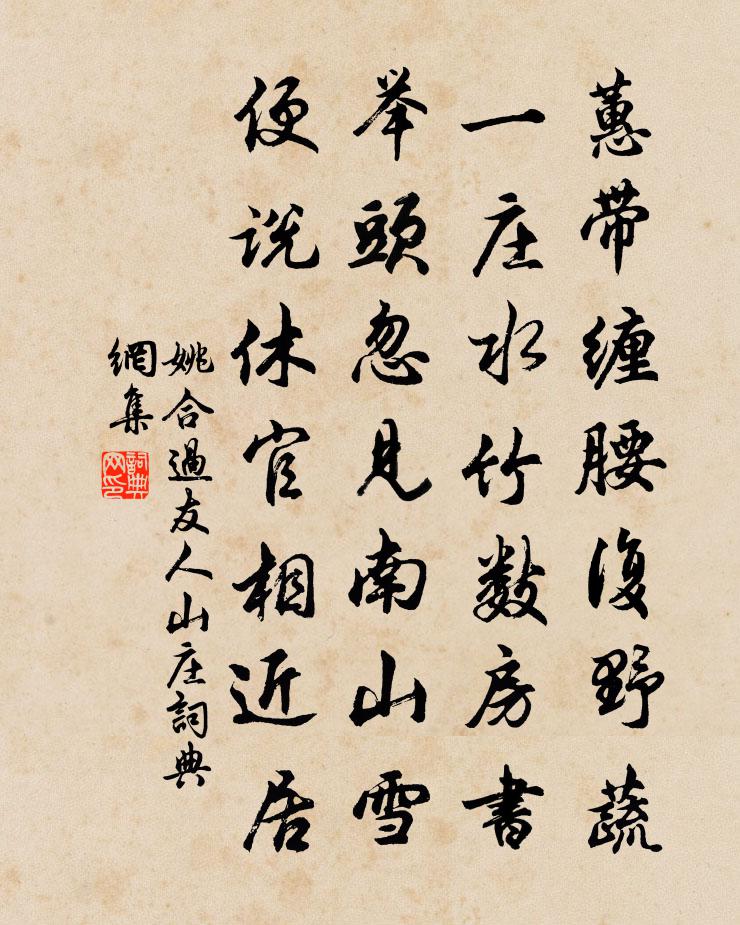 蕙帶纏腰復野蔬
一庄水竹數房書
举頭忽見南山雪
便说休官相近居
姚合過友人山庄詞典
網集
詞典
网印